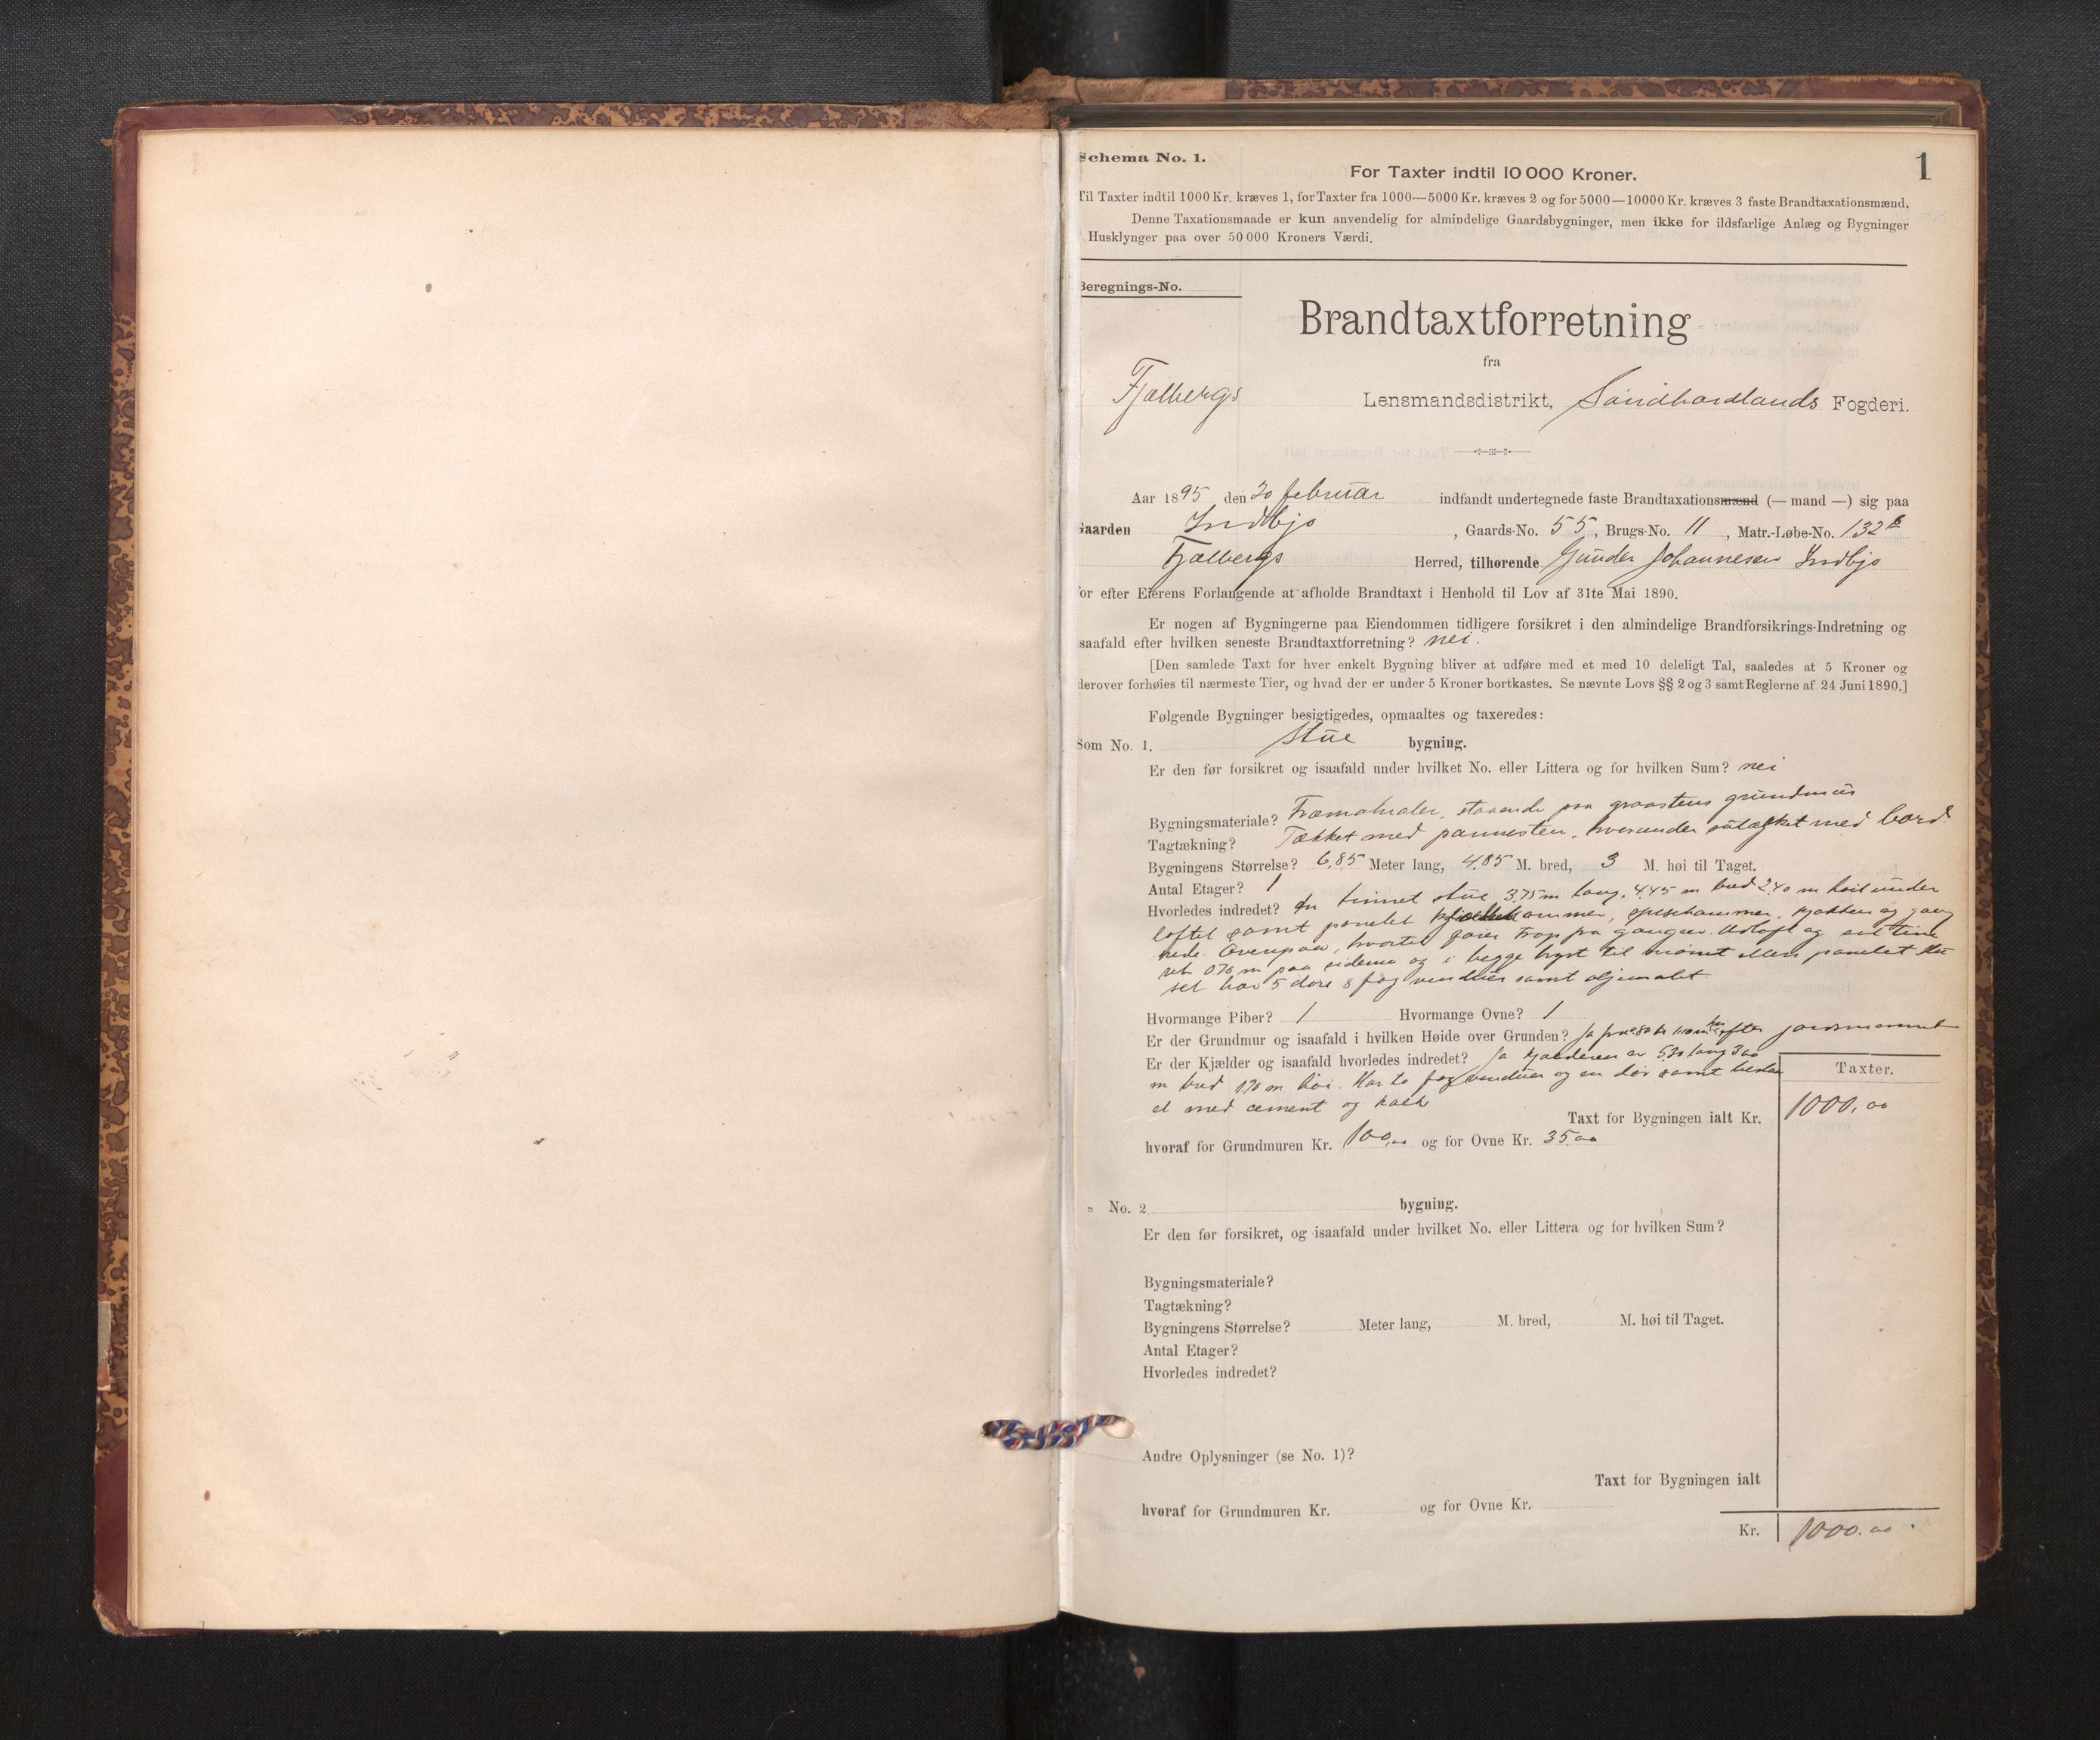 Schema No. 1.
1
For Taxter indtil 10 000 Kroner.
Til Taxter indtil 1000 Kr. kræves 1, for Taxter fra 1000—5000 Kr. kræves 2 og for 5000—10000 Kr. kræves 3 faste Brandtaxationsmænd.
Denne Taxationsmaade er kun anvendelig for almindelige Gaardsbygninger, men ikke for ildsfarlige Anlæg og Bygninger
Husklynger paa over 50 000 Kroners Værdi.
Beregnings-No.
Brandtaxtforretning
fra
Fjælbergs Lensmandsdistrikt, Søndhordlands Fogderi.
Aar 1895 den 20 februar indfandt undertegnede faste Brandtaxationsmænd (— mand —) sig paa
Gaarden Indbjo, Gaards-No. 55, Brugs-No. 11, Matr.-Løbe-No. 132
Fjælbergs Herred, tilhørende Gunder Johannesen Indbjo
for efter Eierens Forlangende at afholde Brandtaxt i Henhold til Lov af 31te Mai 1890.
Er nogen af Bygningerne paa Eiendommen tidligere forsikret i den almindelige Brandforsikrings-Indretning og
isaafald efter hvilken seneste Brandtaxtforretning? nei.
[Den samlede Taxt for hver enkelt Bygning bliver at udføre med et med 10 deleligt Tal, saaledes at 5 Kroner og
derover forhøies til nærmeste Tier, og hvad der er under 5 Kroner bortkastes. Se nævnte Lovs §§ 2 og 3 samt Reglerne af 24 Juni 1890.]
Følgende Bygninger besigtigedes, opmaaltes og taxeredes:
Som No. 1. Stue bygning.
Er den før forsikret og isaafald under hvilket No. eller Littera og for hvilken Sum? nei
Bygningsmateriale? Træmatrialer, staaende paa graastens grundmur
Tagtækning? Tækket med pannesten, hvorunder sutækket med bord
Bygningens Størrelse? 6,85 Meter lang, 4,85 M. bred, 3 M. høi til Taget.
Antal Etager? 1
Hvorledes indredet? En timret stue 3,75 m lang, 4,45 m bred 2,40 m høit under
loftet samt panelet kammer, spisekammer, kjøkken og gang
nede. Ovenpaa, hvortil fører trap fra gangen.
0,70 m paa siderne og i begge bryst til mønet ellers panelet Hu
set har 5 døre 8 fag vinduer samt oljemalet
Hvormange Piber? 1 Hvormange Ovne? 1
Er der Grundmur og isaafald i hvilken Høide over Grunden? Ja fra 0,80 til efter jordsmonnet
Er der Kjælder og isaafald hvorledes indredet? Ja kjælderen er 5,30 lang 3,00
m bred 1,70 m høi. Har to fag vinduer og en dør samt
et med cement og kalk
Taxter.
Taxt for Bygningen ialt Kr. 1000,00
hvoraf for Grundmuren Kr. 100,00 og for Ovne Kr. 35,00
" No. 2 bygning.
Er den før forsikret, og isaafald under hvilket No. eller Littera og for hvilken Sum?
Bygningsmateriale?
Tagtækning?
Bygningens Størrelse? Meter lang, M. bred, M. høi til Taget.
Antal Etager?
Hvorledes indredet?
Andre Oplysninger (se No. 1)?
Taxt for Bygningen ialt
hvoraf for Grundmuren Kr. og for Ovne Kr.
Kr. 1000.00